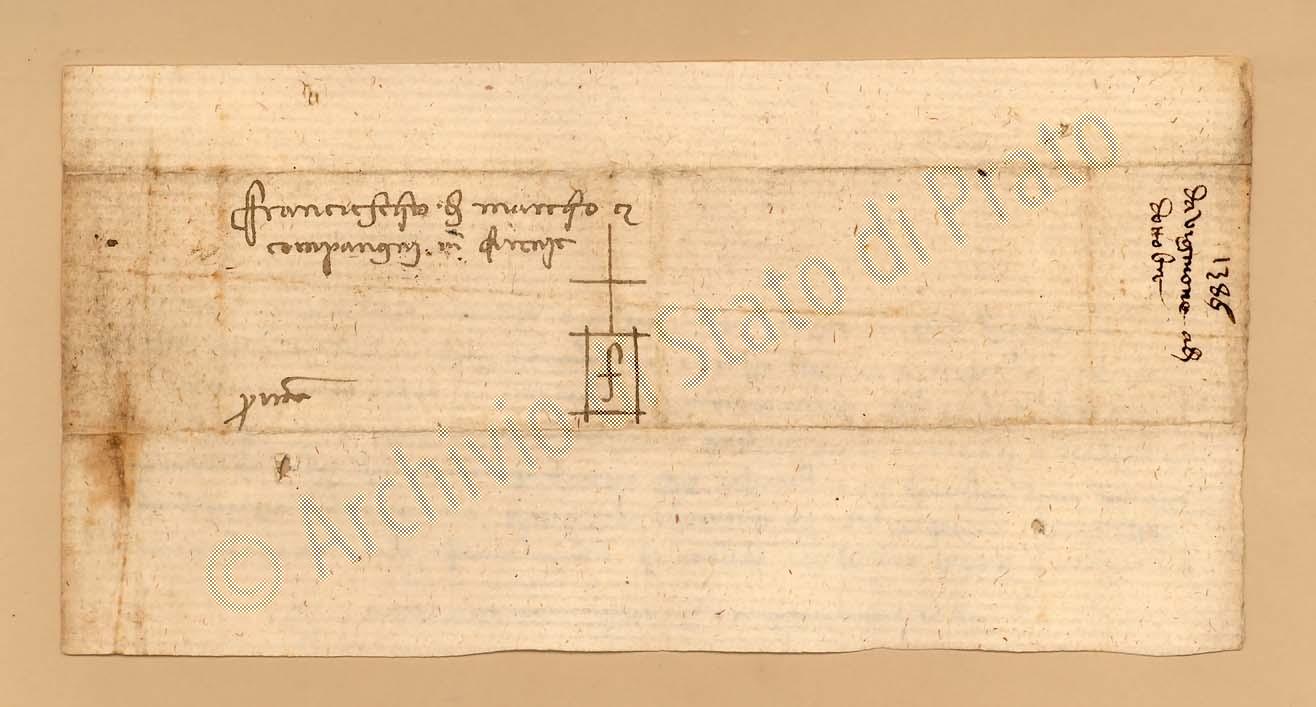 Francischo di Marcho e
conpangni in Firenze
prima
1386
da Vignone a dì
d'ottobre
© Archivio di Stato di Prato